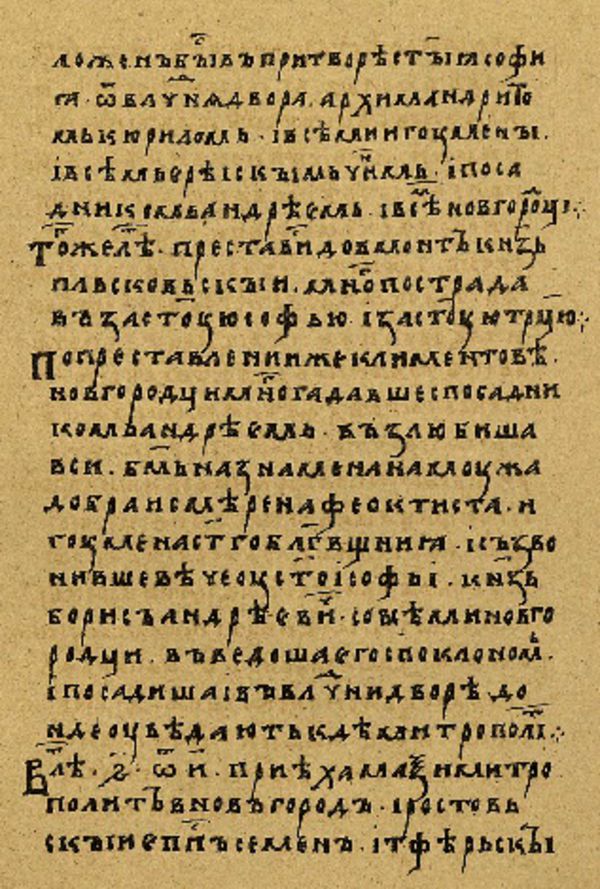 ложенъ бы͡ въ притворѣ ст҃ыӕ софи
ӕ · ѿ влч҃нѧ двора · архимандритоⷨ
мь кюриломь · і всѣми игоумены ·
і всѣмь ѥрѣіскымь чиномь · і поса
дникомь андрѣемь · і всѣ новгороци ⁘
Томже лѣⷮ · преставися довмонтъ кнѧзь
пльсковьскыи · много пострада
въ за ст҃ую софью · і за ст҃ую трⷪ҇цю ⁘
По преставлении же климентовѣ ·
новгородци много гадавше с посадни
комь андрѣемь · възлюбиша
вси · бм҃ь назнаменана моужа
добра и смѣрена феоктиста · и
гоумена ст҃го благовѣщениӕ · і съзво
нивше вѣче оу ст҃ои софьі · кнѧзь
борисъ андрѣевиⷱ · со всѣми новго
родци · въведоша ѥго с поклономь ·
і посадиша і въ влⷣчни дворѣ · до
ндѥ оувѣдають кдѣ митрополиⷮ ⁘
В лѣⷮ · ҂ѕ҃ · ѿ и҃ · приѣха маѯим митро
политъ в новъгородъ · і ростовь
скыи еп҃пъ семенъ · і тфѣрьскыі